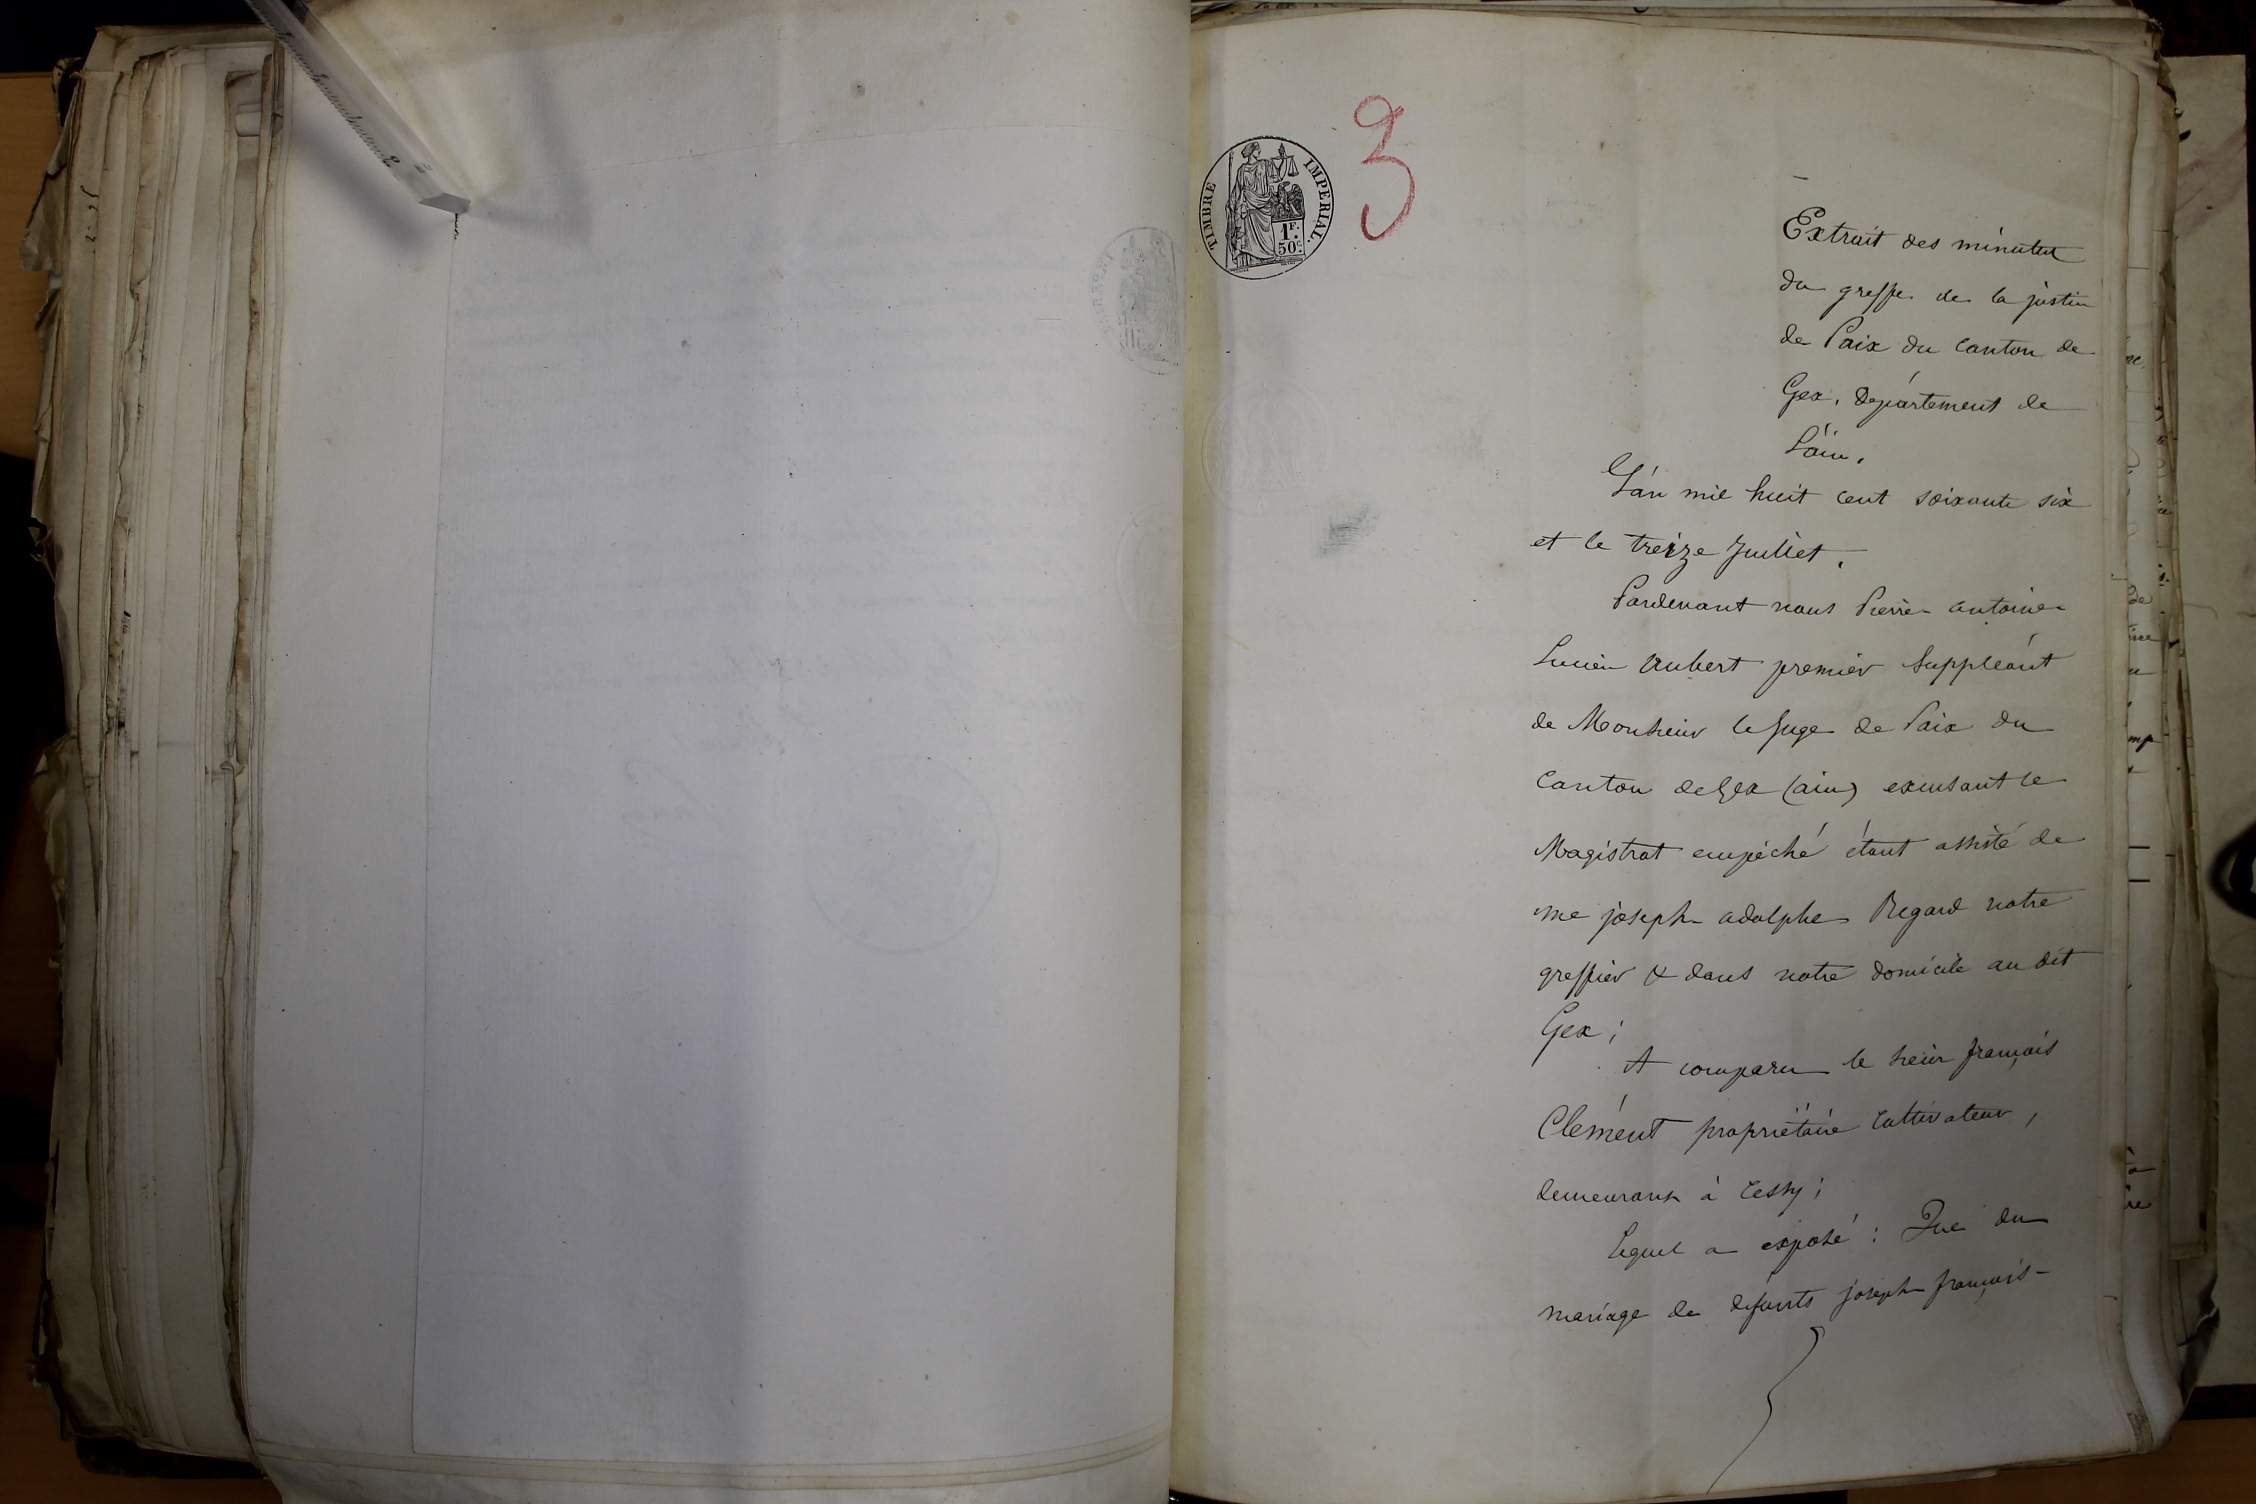 3
TIMBRE IMPERIAL.
1F.
50c.
Extrait des minutes
du greffe de la justice
de Paix du Canton de
Gex, Département de
L'ain.
L'an mil huit cent soixante six
et le treize Juillet,
Pardevant nous Pierre antoine
Lucien Aubert premier Suppléant
de Monsieur le Juge de Paix du
Canton de Gex (ain) excusant ce
Magistrat empêché étant assisté de
me joseph adolphe Regard notre
greffier & dans notre domicile au dit
Gex;
A comparu le sieur françois
Clément propriétaire cultivateur,
demeurant à Cessy;
Lequel a exposé : Que du
mariage de défunts joseph françois-